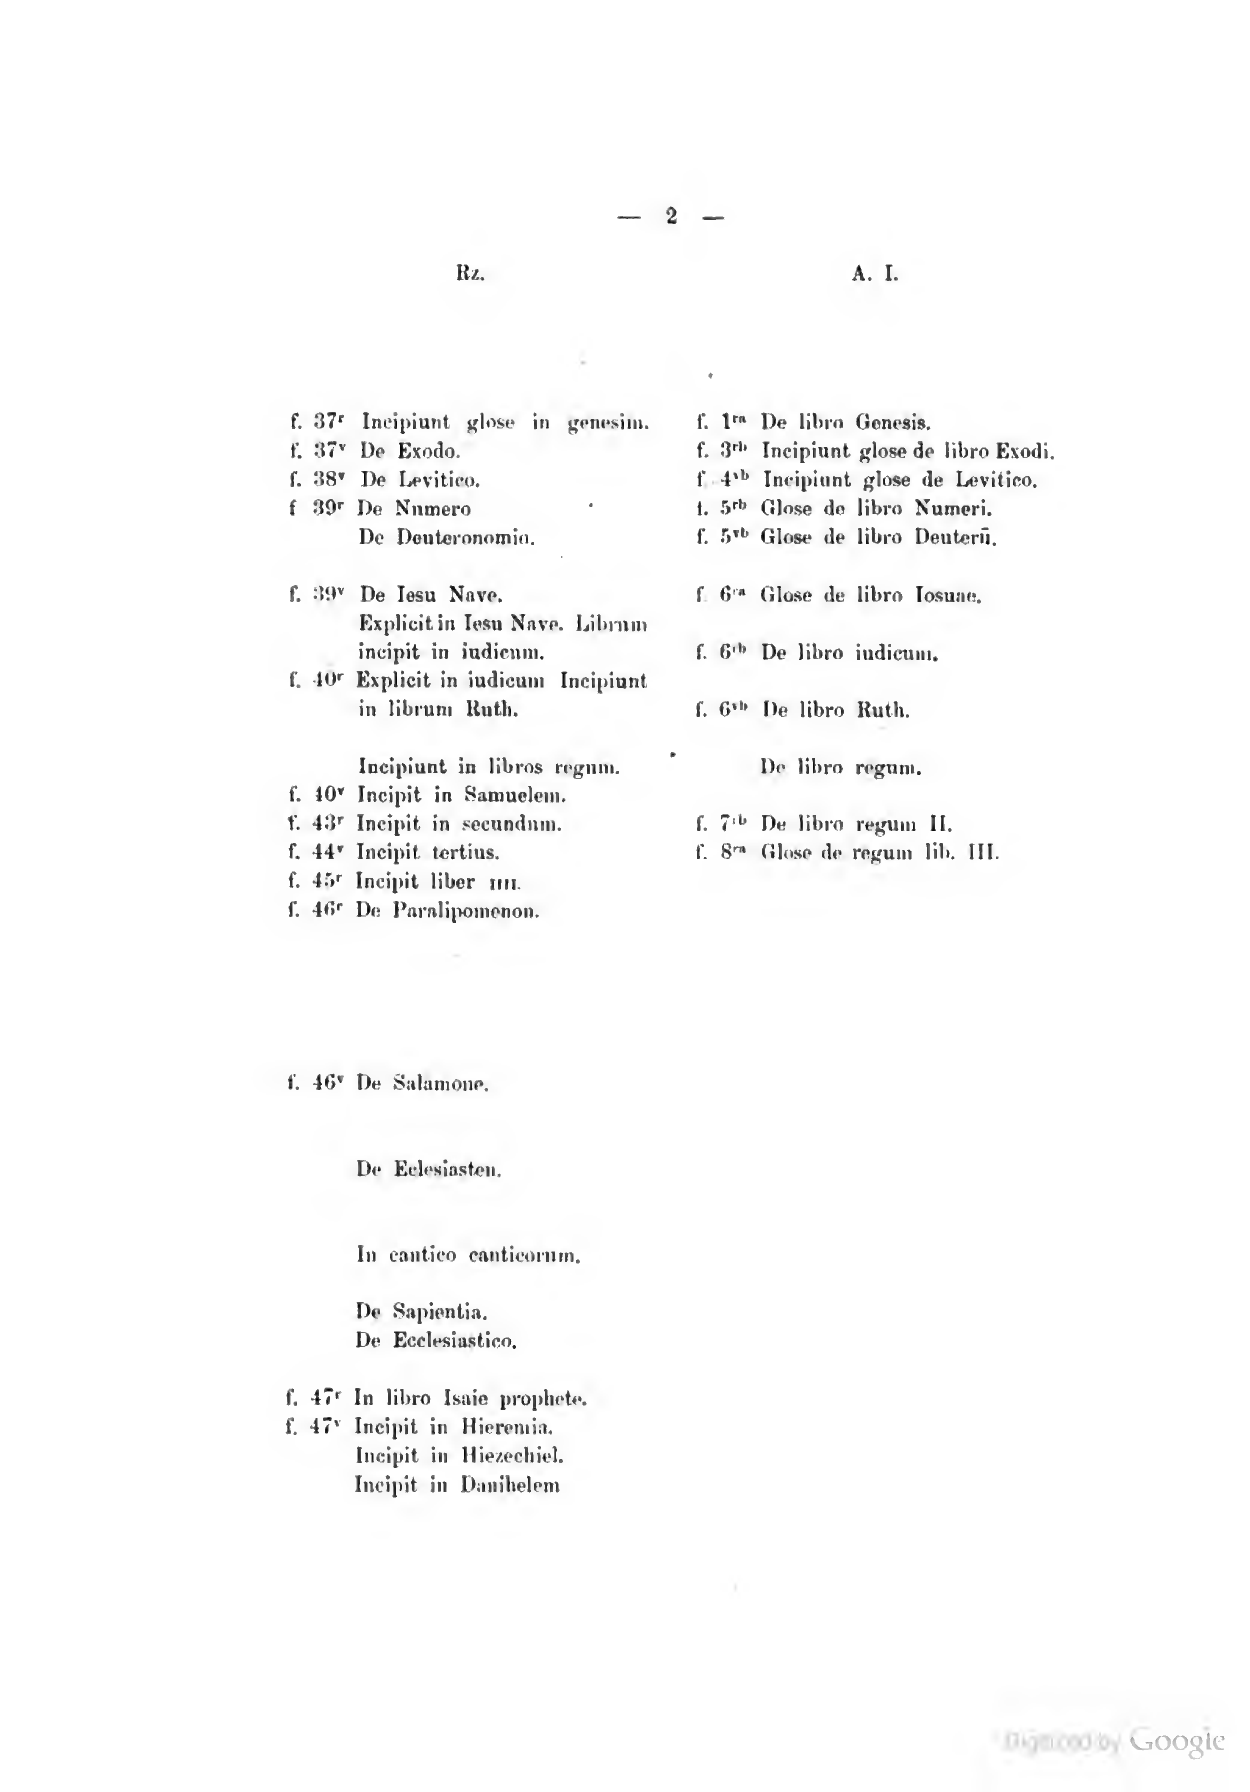 — 2 —
Rz. A. I.
f. 37r Incipiunt glose in genesim. f. 1ra De libro Genesis.
f. 37v De Exodo. f. 3rb Incipiunt glose de libro Exodi.
f. 38v De Levitico. f 4vb Incipiunt glose de Levitico.
f 39r De Numero f. 5rb Glose de libro Numeri.
De Deuteronomio. f. 5vb Glose de libro Deuterū.
f. 39v De Iesu Nave. f 6ra Glose de libro Iosuae.
Explicit in Iesu Nave. Librum
incipit in iudicum. f. 6rb De libro iudicum.
f. 40r Explicit in iudicum Incipiunt
in librum Ruth. f. 6vb De libro Ruth.
Incipiunt in libros regum. De libro regum.
f. 40v Incipit in Samuelem.
f. 43r Incipit in secundum. f. 7rb De libro regum II.
f. 44v Incipit tertius. f. 8ra Glose de regum lib. III.
f. 45r Incipit liber IIII.
f. 46r De Paralipomenon.
f. 46v De Salamone.
De Eclesiasten.
In cantico canticorum.
De Sapientia.
De Ecclesiastico.
f. 47r In libro Isaie prophete.
f. 47v Incipit in Hieremia.
Incipit in Hiezechiel.
Incipit in Danihelem
Digitized by Google